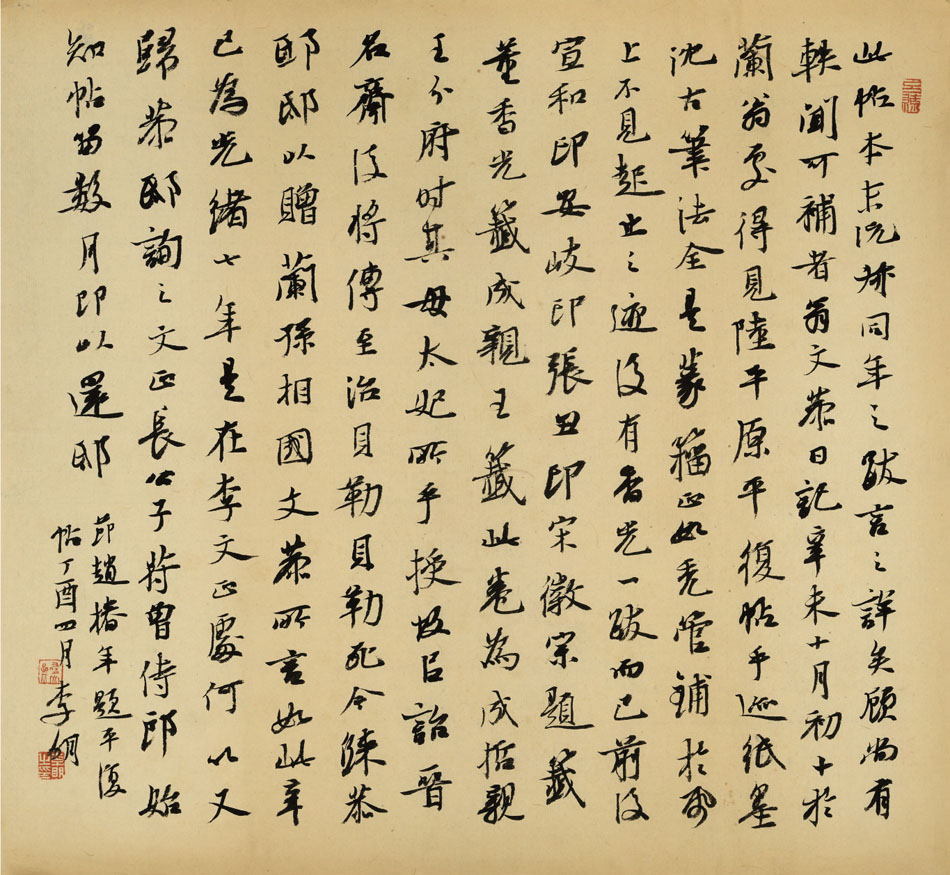 此帖本末沅尗同年之跋言之詳矣顧尚有
軼聞可補者翁文恭日記辛未十月初十於
蘭翁處得見陸平原平復帖手迹紙墨
沈古筆法全是篆籀正如禿管鋪於紙
上不見起止之迹後有香光一跋而已前後
宣和印安岐印張丑印宋徽宗題籤
董香光籤成親王籤此卷為成哲親
王分府時其母太妃所手授故曰詒晉
名齋後將傳至治貝勒貝勒死令鍊恭
邸邸以贈蘭孫相國文恭所言如此辛
巳為光緒七年是在李文正處何以又
歸恭邸詢之文正長公子符曾侍郎始
知帖留數月即以還邸
節趙椿年題平復
帖丁酉四月李